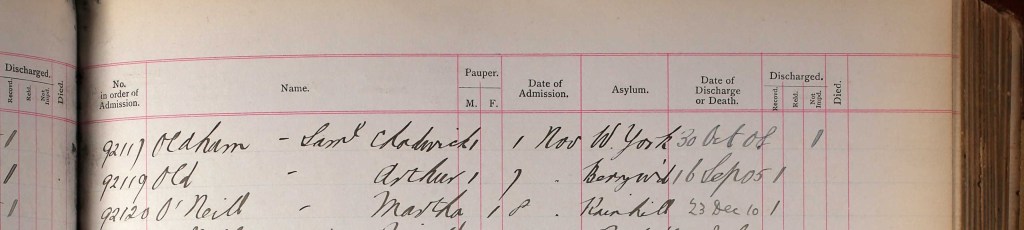 Discharged. Died.
Recovd. Reld. Not Impd.
No. in order of Admission. Name. Pauper. M. F. Date of Admission. Asylum. Date of Discharge or Death. Discharged. Recovd. Reld. Not Impd. Died.
92117 Oldham - Saml Chadwick 1 1 Nov W. York 30 Oct 08 1
92119 Old - Arthur 1 7 . Berrywd 16 Sep 05 1
92120 O'Neill - Martha 1 8 . Rainhill 23 Dec 10 1